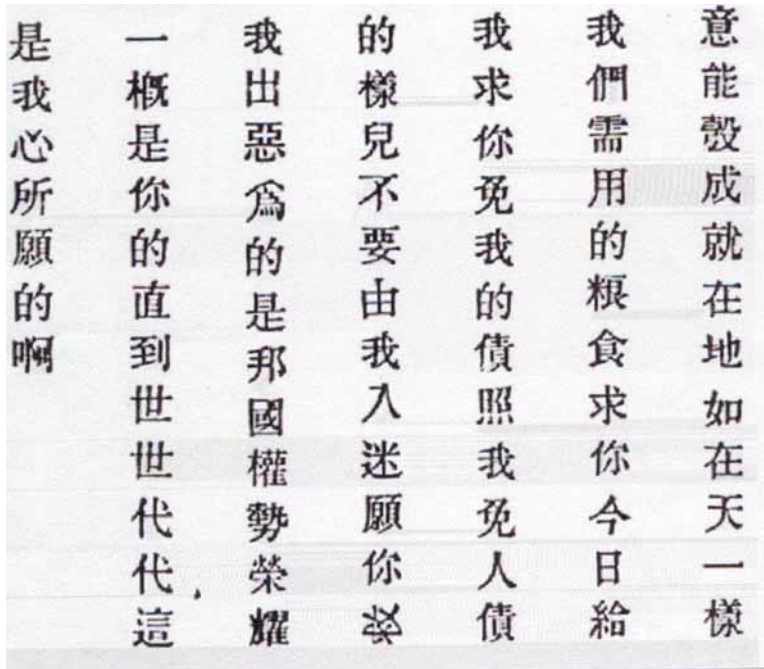 意能彀成就在地如在天一樣
我們需用的粮食求你今日給
我求你免我的債照我免人債
的樣兒不要由我入迷願你救
我出惡爲的是邦國權勢榮耀
一槪是你的直到世世代代、這
是我心所願的啊